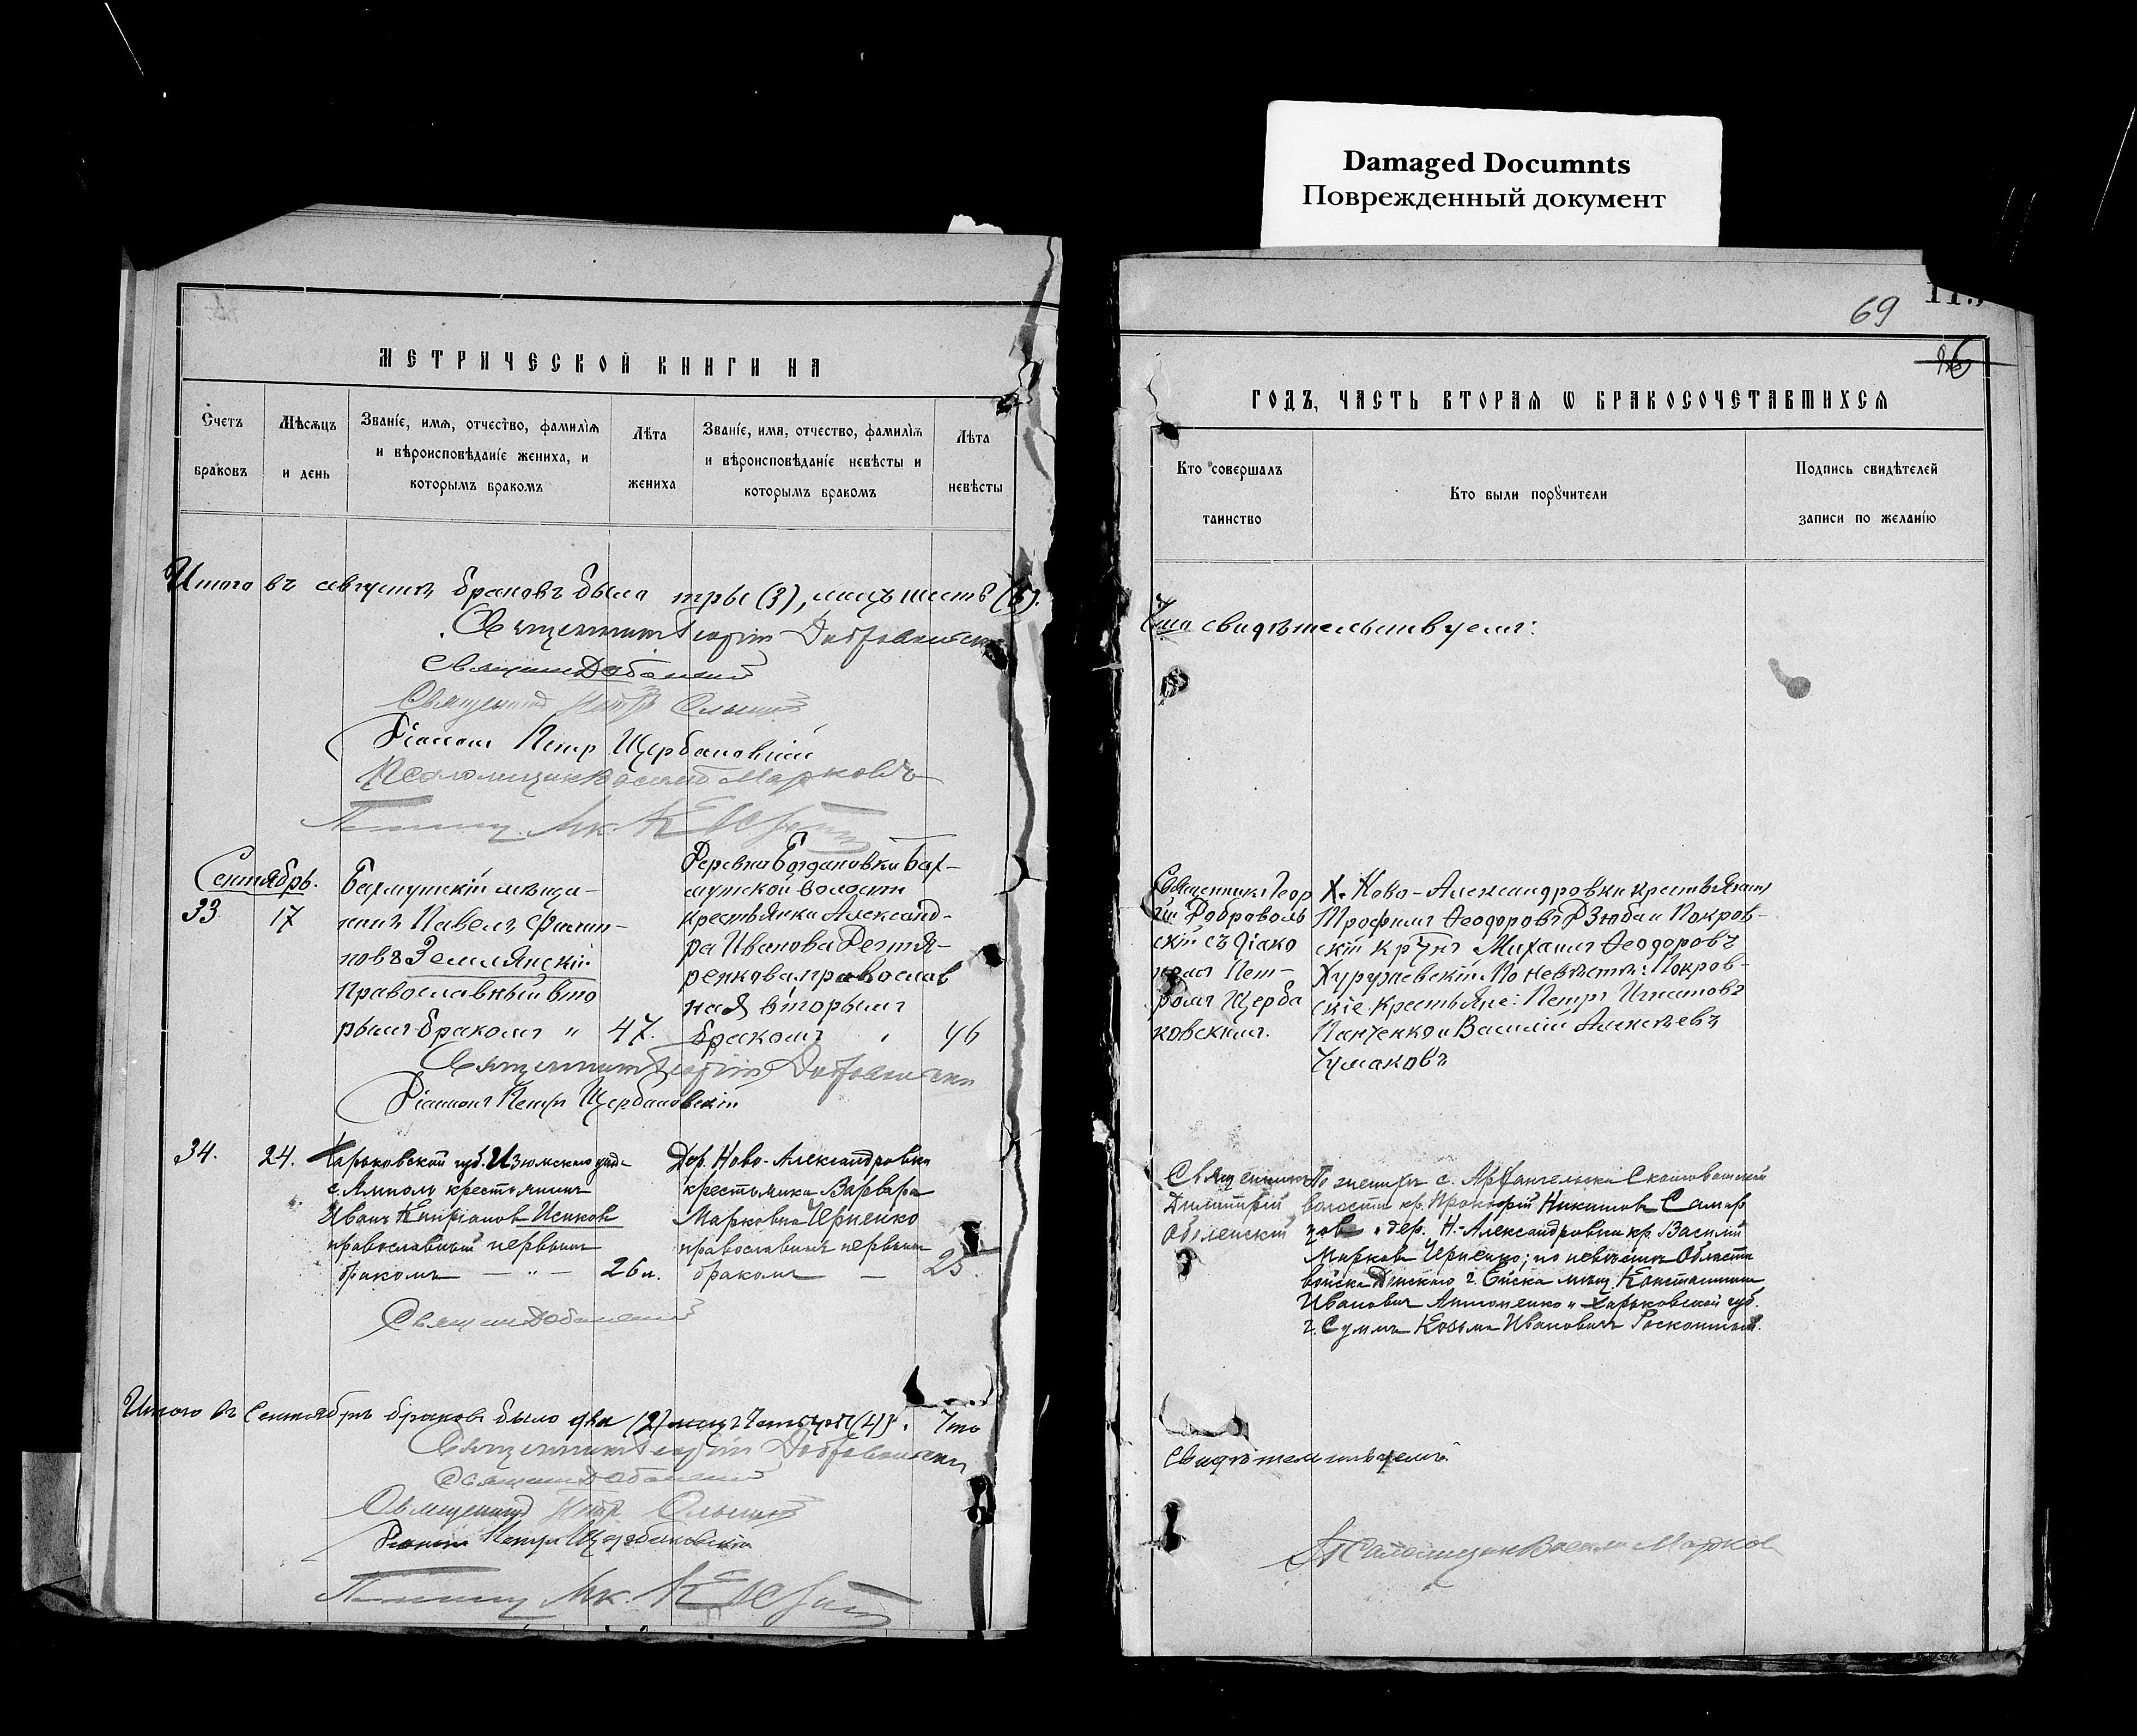 Damaged Documnts
Поврежденный документ
69
МЕТРИЧЕСКОЙ КНИГИ НА
Счетъ браковъ
Мѣсѧцъ и день
Званіе, имѧ, отчество, фамиліѧ
и вѣроисповѣданіе жениха, и
которымъ бракомъ
Лѣта жениха
Званіе, имѧ, отчество, фамиліѧ
и вѣроисповѣданіе невѣсты и
которымъ бракомъ
Лѣта невѣсты
Итого въ августѣ браковъ было три (3), лицъ шесть (6).
Священникъ Георгій Добровольскій
Священ Д Оболенскій
Священник Петръ
Діаконъ Петр Щербаковскій
Псаломщик Василій Марковъ
Сентябрь.
33
17
Бахмутскій мѣща-
нинъ Павелъ Филип-
повъ Землянскій
православный вто
рымъ бракомъ "
47.
Деревни Богдановки Бах-
мутской волости
крестьянка Александ-
ра Иванова Дегтя-
ренкова православ
ная вторымъ
бракомъ
46
Священникъ Георгій Добровольскій
Діаконъ Петръ Щербаковскій
34.
24.
Харьковской губ. Изюмскаго уѣзд
с. Ямполь крестьянинъ
Иванъ Кипріановъ Исиков
православный первымъ
бракомъ — " —
26 л.
Дер. Ново-Александровки
крестьянка Варвара
Марковна Черненко
православная первымъ
бракомъ —
25
Священ Д Оболенскій
Итого въ Сентябрѣ браковъ было два (2) лицъ четыре (4). Что
Священникъ Георгій Добровольскій
Священ Д Оболенскій
Священник Петръ
Діаконъ Петръ Щербаковскій
ГОДЪ, ЧАСТЬ ВТОРАѦ Ѡ БРАКОСОЧЕТАВШИХСѦ
Кто совершалъ
таинство
Кто были порꙋчители
Подпись свидѣтелей
записи по желанію
Что свидѣтельствуемъ:
Священникъ Геор
гій Доброволь
скій съ діако
номъ Пет-
ромъ Щерба
ковскимъ.
Х. Ново-Александровки крестьянинъ
Трофимъ Ѳеодоровъ Дзюба и Покров-
скій Михаилъ Ѳеодоровъ
По невѣстѣ: Покров-
скіе крестьяне: Петръ Игнатовъ
Панченко и Василій Алексѣевъ
Чумаковъ
Священникъ
Димитрій
Оболенскій
По женихѣ с. Архангельска Скотоватской
волости кр. Прокофій Никитовъ Самар
цов и дер. Н.-Александровки кр. Василій
Марковъ Черненко; по невѣстѣ Области
войска Донскаго г. Ейска мѣщ. Константинъ
Ивановичъ Антоненко и Харьковской губ.
г. Сумъ Козьма Ивановичъ
свидѣтельствуемъ.
Псаломщикъ Василій Марков